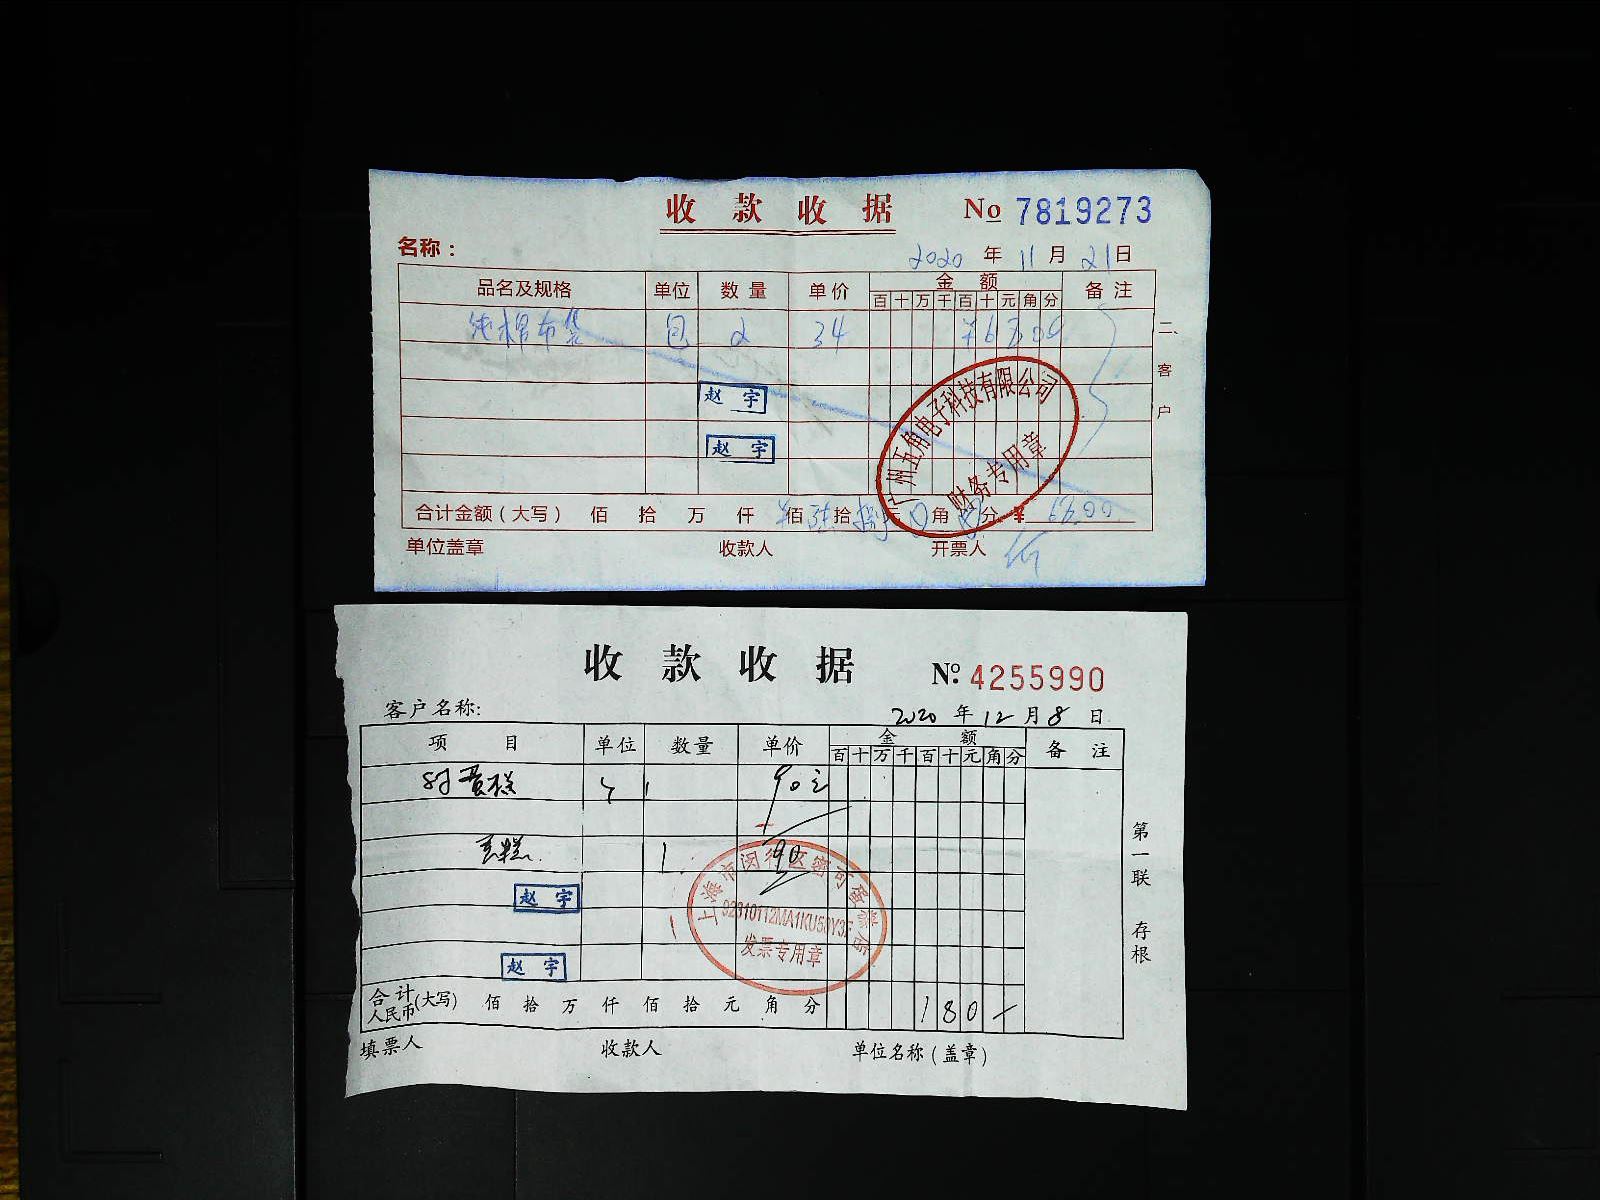 收款收据 No 7819273
名称：
2020 年 11 月 21日
品名及规格 单位 数量 单价 金额 备注
百 十 万 千 百 十 元 角 分
纯棉布袋 包 2 34 ¥6800
二、客户
赵宇
赵宇
广州五角电子科技有限公司
财务专用章
合计金额（大写） 佰 拾 万 仟 佰 陆 拾 捌 元 0 角 0 分 ¥ 68.00
单位盖章 收款人 开票人
收款收据 No. 4255990
客户名称:
2020 年 12 月 8 日
项目 单位 数量 单价 金额 备注
百 十 万 千 百 十 元 角 分
蛋糕 1 90元
蛋糕 1 90
第一联 存根
赵宇
赵宇
上海市闵行区密可蛋糕店
发票专用章
合计人民币(大写) 佰 拾 万 仟 佰 拾 元 角 分 180
填票人 收款人 单位名称(盖章)